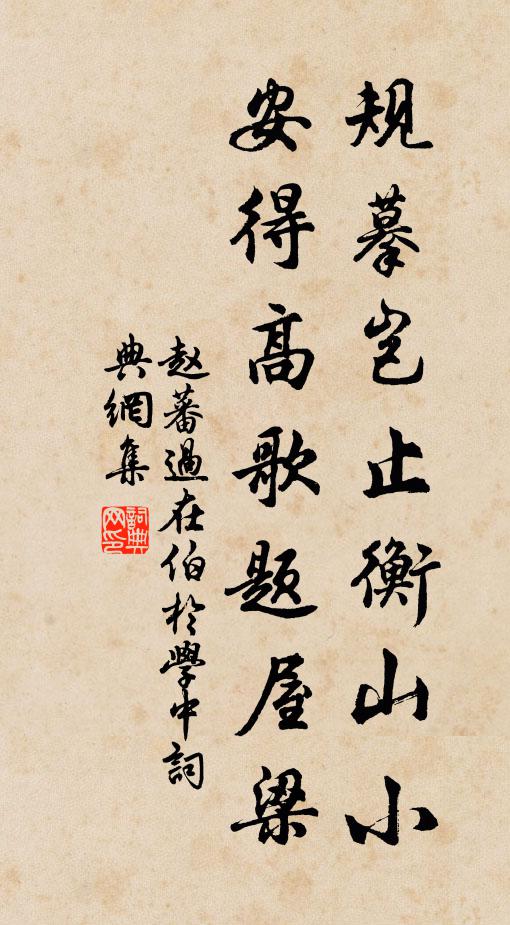 规摹岂止衡山小
安得高歌题屋梁
赵蕃過在伯於學中詞
典網集
詞典
网印